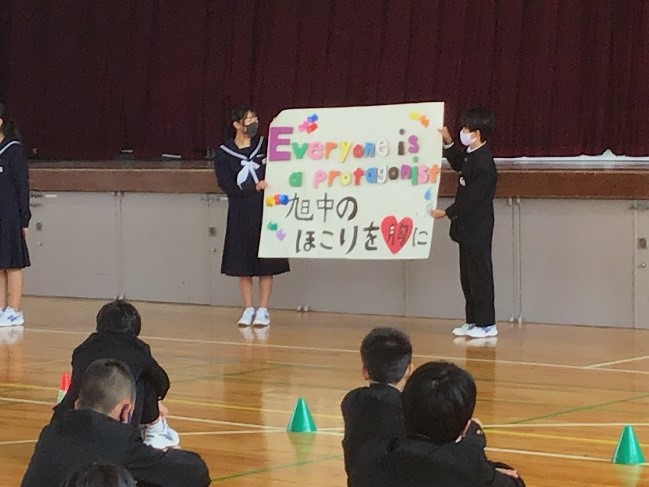 Everyone is
a protagonist
旭中の
ほこりを胸に